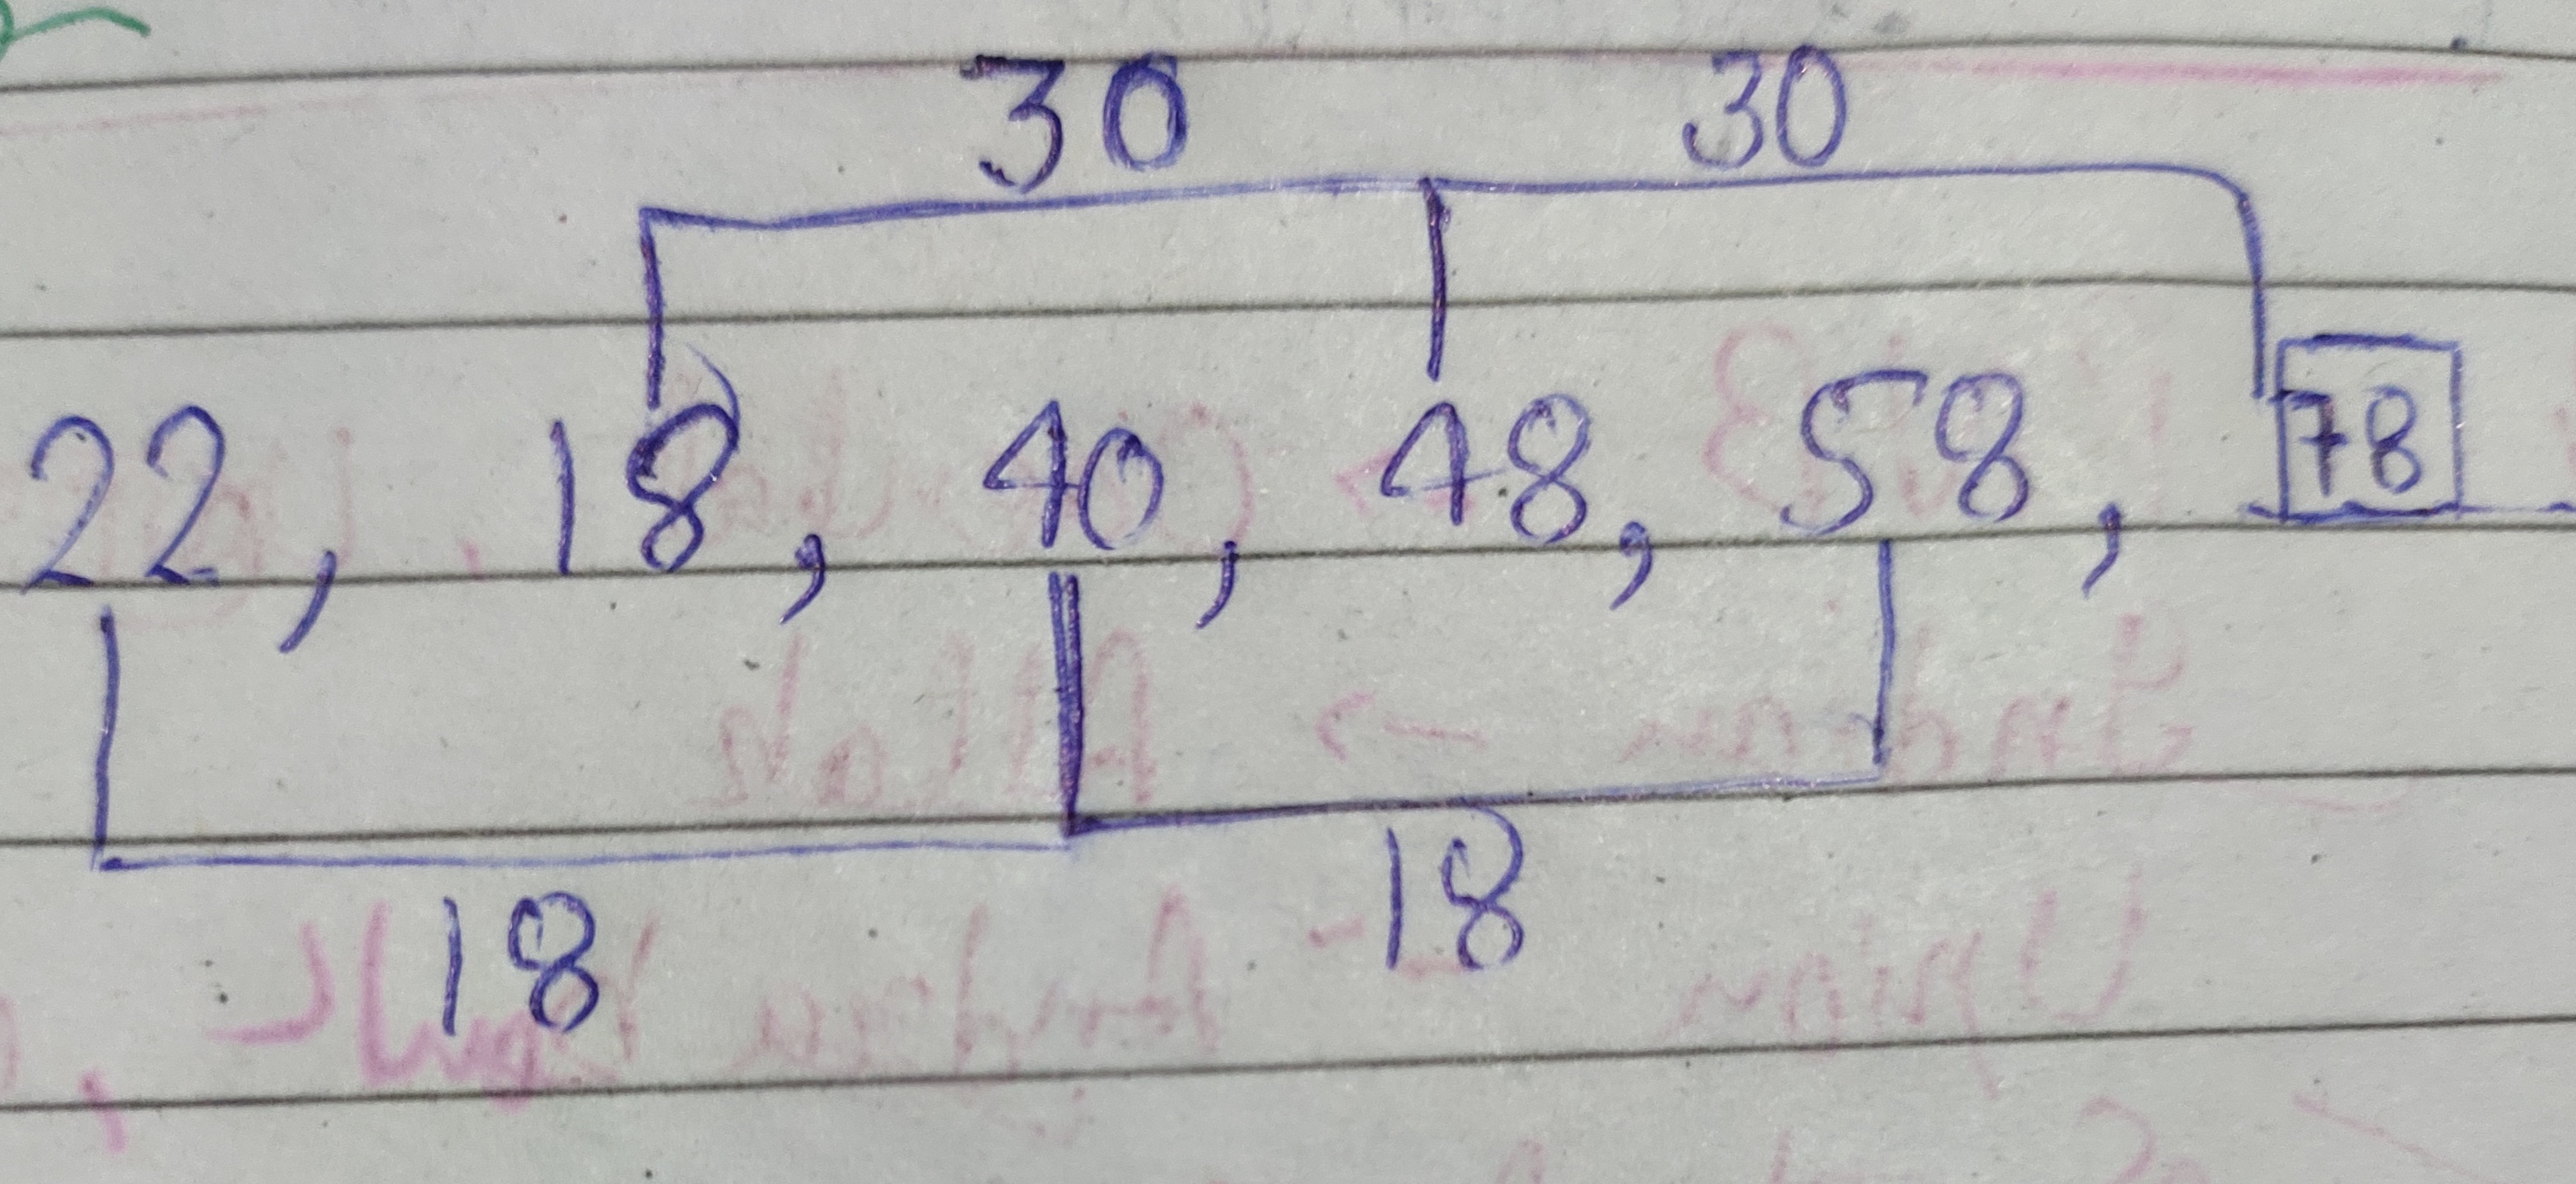 30 30
22, 18, 40, 48, 58, 78
18 18